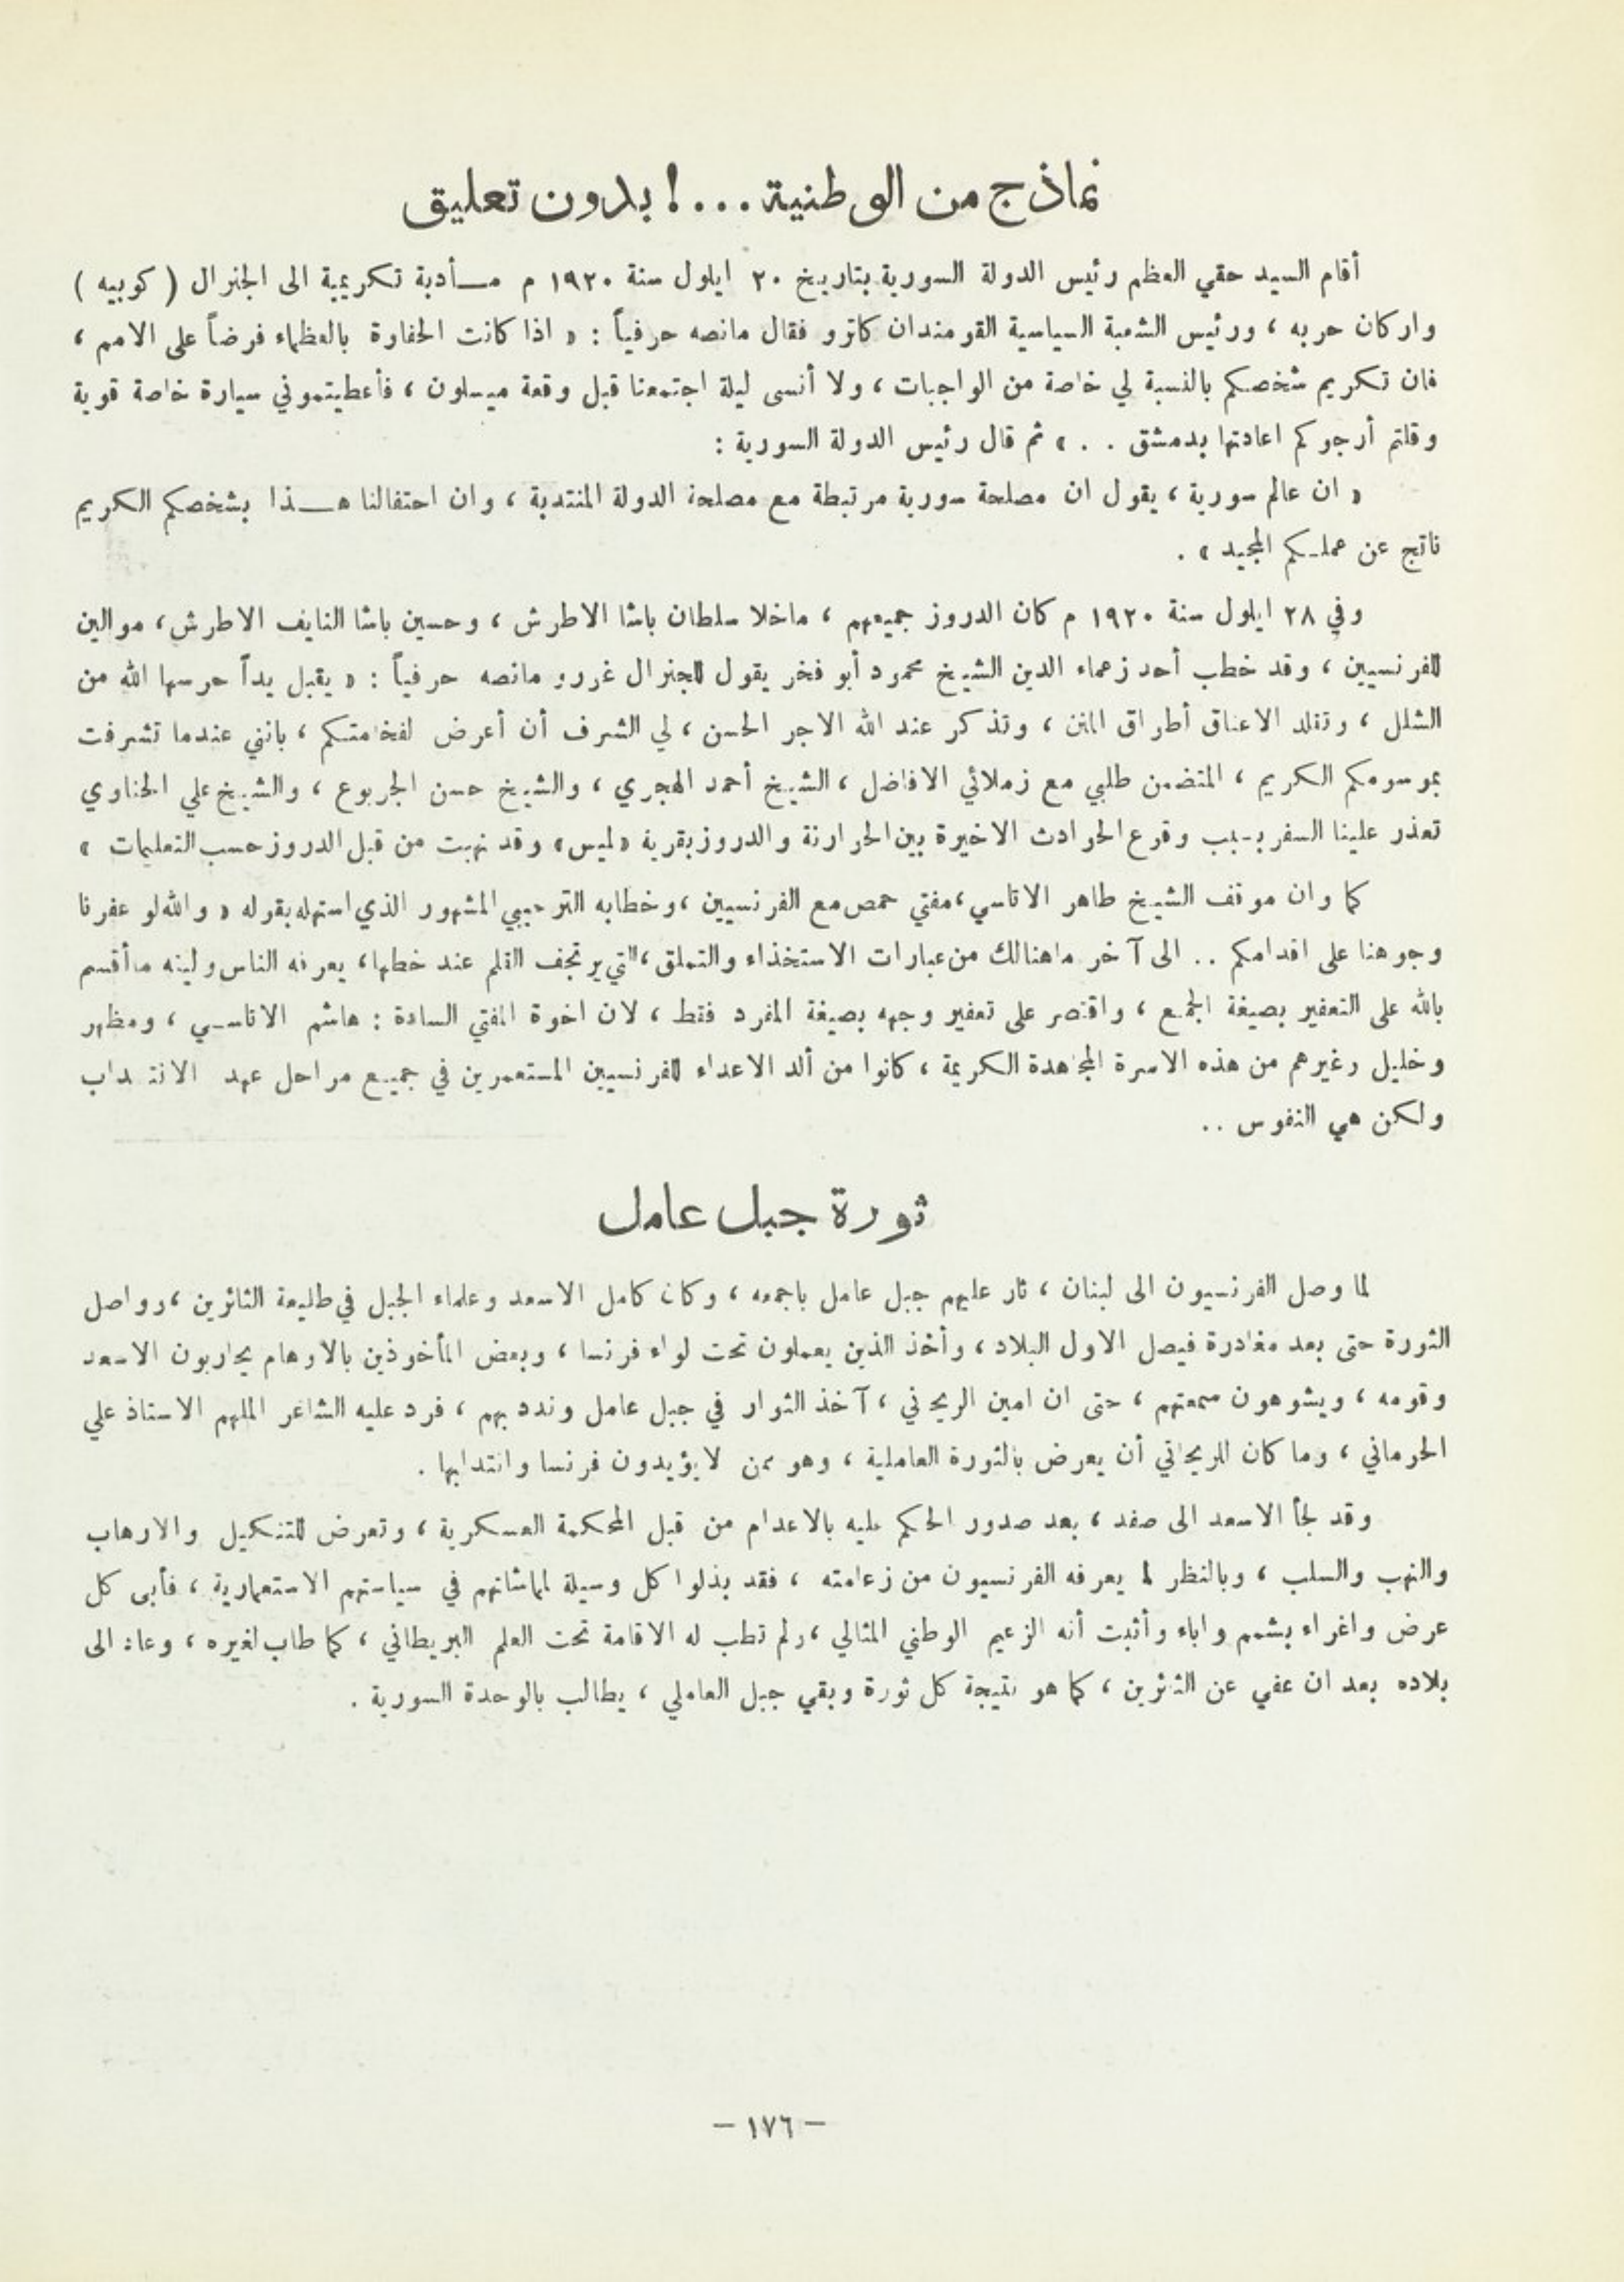 نماذج من الوطنية ...! بدون تعليق
أقام السيد حقي العظم رئيس الدولة السورية بتاريخ ٢٠ ايلول سنة ١٩٢٠ م مـــأدبة تكريمية الى الجنرال ( كوبيه )
واركان حربه ، ورئيس الشعبة السياسية القومندان كاترو فقال مانصه حرفياً : « اذا كانت الحفاوة بالعظماء فرضاً على الامم ،
فان تكريم شخصكم بالنسبة لي خاصة من الواجبات ، ولا أنسى ليلة اجتمعنا قبل وقعة ميسلون ، فأعطيتموني سيارة خاصة قوية
وقلتم أرجوكم اعادتها بدمشق . . » ثم قال رئيس الدولة السورية :
« ان عالم سورية ، يقول ان مصلحة سورية مرتبطة مع مصلحة الدولة المنتدبة ، وان احتفالنا هـــذا بشخصكم الكريم
ناتج عن عملكم المجيد » .
وفي ٢٨ ايلول سنة ١٩٢٠ م كان الدروز جميعهم ، ماخلا سلطان باشا الاطرش ، وحسين باشا النايف الاطرش ، موالين
للفرنسيين ، وقد خطب أحد زعماء الدين الشيخ محمود أبو فخر يقول للجنرال غورو مانصه حرفياً : « يقبل يداً حرسها الله من
الشلل ، وتقلد الاعناق أطراق المنن ، وتذكر عند الله الاجر الحسن ، لي الشرف أن أعرض لفخامتكم ، بانني عندما تشرفت
بموسومكم الكريم ، المتضمن طلبي مع زملائي الافاضل ، الشيخ أحمد الهجري ، والشيخ حسن الجربوع ، والشيخ علي الحناوي
تعذر علينا السفر بسبب وقوع الحوادث الاخيرة بين الحوارنة والدروز بقرية « لميس » وقد نهبت من قبل الدروز حسب التعليمات »
كما وان موقف الشيخ طاهر الاتاسي ، مفتي حمص مع الفرنسيين ، وخطابه الترحيبي المشهور الذي استهله بقوله « والله لو عفرنا
وجوهنا على اقدامكم .. الى آخر ماهنالك من عبارات الاستخذاء والتملق ، التي يرتجف القلم عند خطها ، يعرفه الناس وليته ماأقسم
بالله على التعفير بصيغة الجمع ، واقتصر على تعفير وجهه بصيغة المفرد فقط ، لان اخوة المفتي السادة : هاشم الاتاسي ، ومظهر
وخليل وغيرهم من هذه الاسرة المجاهدة الكريمة ، كانوا من ألد الاعداء للفرنسيين المستعمرين في جميع مراحل عهد الانتداب
ولكن هي النفوس ..
ثورة جبل عامل
لما وصل الفرنسيون الى لبنان ، ثار عليهم جبل عامل باجمعه ، وكان كامل الاسعد وعلماء الجبل في طليعة الثائرين ، وواصل
الثورة حتى بعد مغادرة فيصل الاول البلاد ، وأخذ الذين يعملون تحت لواء فرنسا ، وبعض المأخوذين بالاوهام يحاربون الاسعد
وقومه ، ويشوهون سمعتهم ، حتى ان امين الريحاني ، آخذ الثوار في جبل عامل وندد بهم ، فرد عليه الشاعر الملهم الاستاذ علي
الحوماني ، وما كان للريحاني أن يعرض بالثورة العاملية ، وهو ممن لايؤيدون فرنسا وانتدابها .
وقد لجأ الاسعد الى صفد ، بعد صدور الحكم عليه بالاعدام من قبل المحكمة العسكرية ، وتعرض للتنكيل والارهاب
والنهب والسلب ، وبالنظر لما يعرفه الفرنسيون من زعامته ، فقد بذلوا كل وسيلة لمماشاتهم في سياستهم الاستعمارية ، فأبى كل
عرض واغراء بشمم واباء وأثبت أنه الزعيم الوطني المثالي ، ولم تطب له الاقامة تحت العلم البريطاني ، كما طاب لغيره ، وعاد الى
بلاده بعد ان عفي عن الثائرين ، كما هو نتيجة كل ثورة وبقي جبل العاملي ، يطالب بالوحدة السورية .
– ١٧٦ –